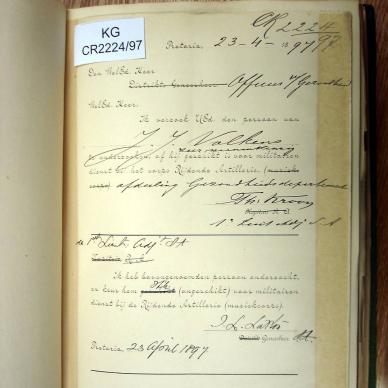 KG
CR2224/97
CR 2224
97
Pretoria, 23-4-1897
Den WelEd. Heer
Districts Geneesheer Officier v/ Gezondheid
WelEd. Heer,
Ik verzoek UEd. den persoon van
J. J. Volkens
te onderzoeken, of hij geschikt is voor militairen
dienst bij het corps Rijdende Artillerie, (muziek-
corps) afdeeling Gezondheidsdepartement
1e Luit Adj S.A
de 1e Luit Adjt SA
Ik heb bovengenoemden persoon onderzocht,
en keur hem (ongeschikt) voor militairen
dienst bij de Rijdende Artillerie (muziekcorps).
Geneesheer SA.
Pretoria, 23 April 1897